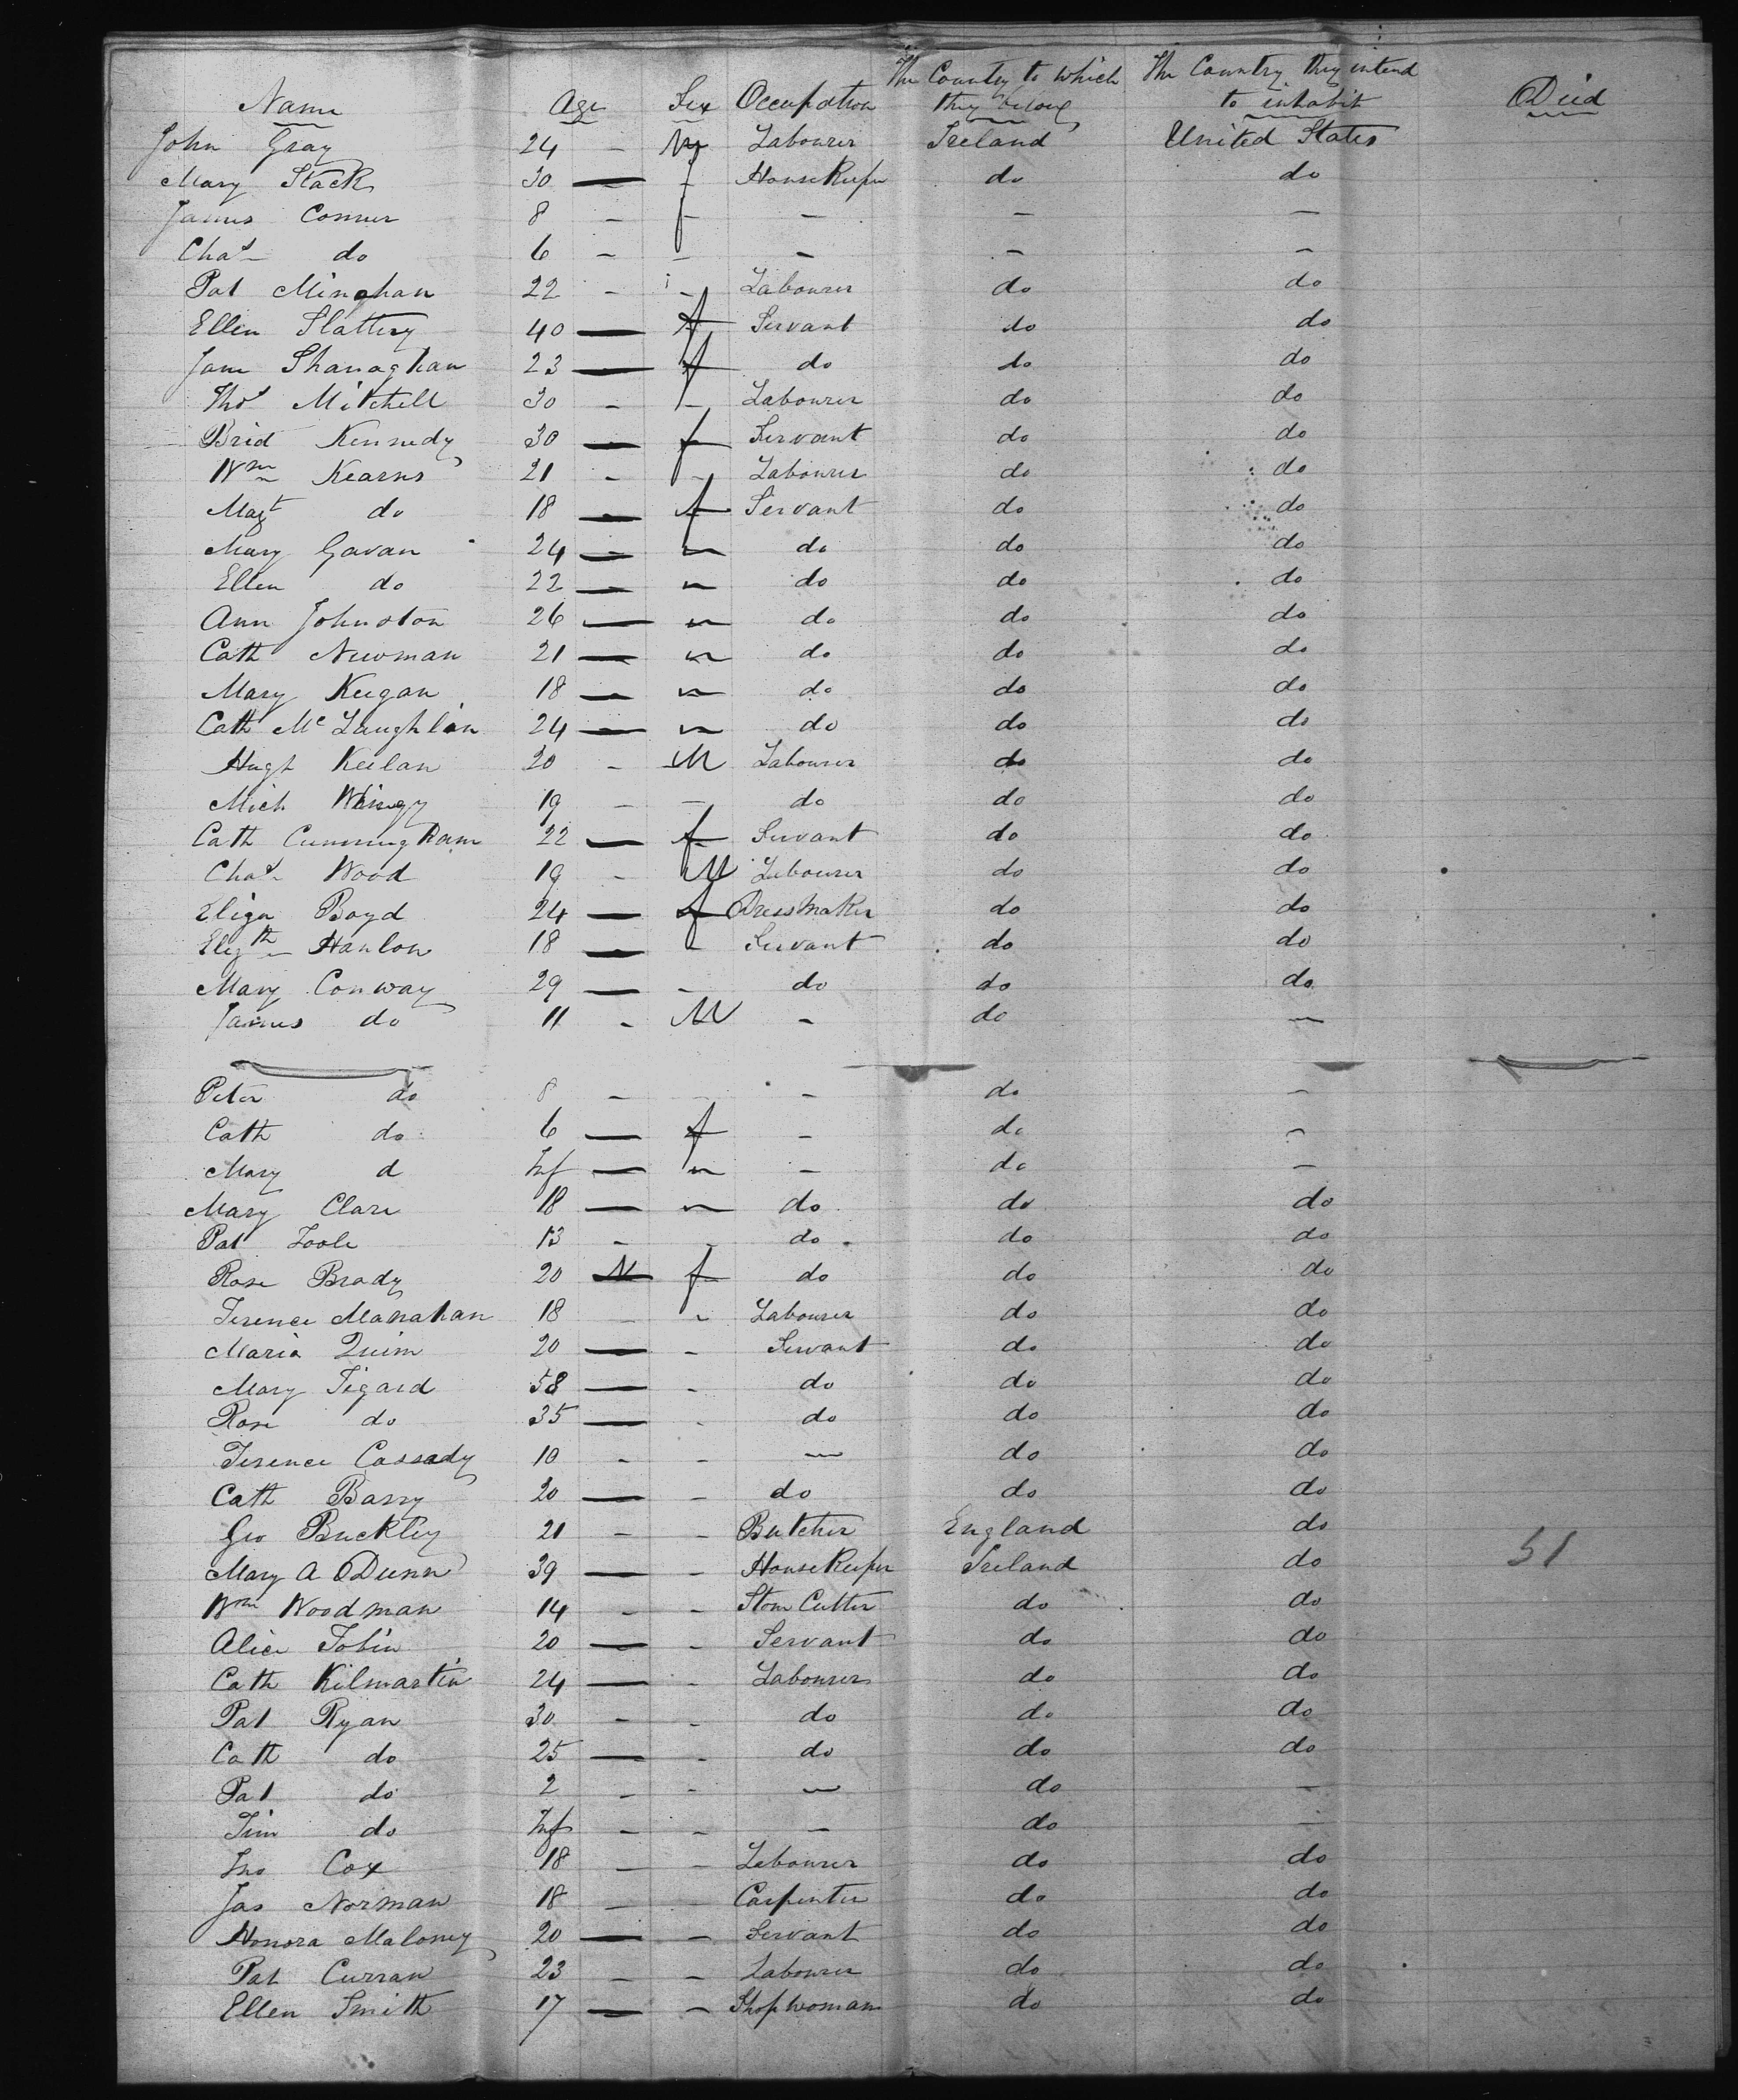 Name Age Sex Occupation The Country to which they belong The Country they intend to inhabit Died
John Gray 24 - M Labourer Ireland United States
Mary Stack 30 — f HouseKeeper do do
James Conner 8 - - - - -
Chas do 6 - - - - -
Pat Minghan 22 - - Labourer do do
Ellen Slattery 40 — f Servant do do
Jane Shanaghan 23 — f do do do
Thos Mitchell 30 - - Labourer do do
Brid Kennedy 30 — f Servant do do
Wm Kearns 21 - - Labourer do do
Magt do 18 — f Servant do do
Mary Gavan 24 — " do do do
Ellen do 22 — " do do do
Ann Johnston 26 — " do do do
Cath Newman 21 — " do do do
Mary Keegan 18 — " do do do
Cath McLaughlin 24 — " do do do
Hugh Keelan 20 - M Labourer do do
Mich 19 - - do do do
Cath Cunningham 22 — f Servant do do
Chas Wood 19 - M Labourer do do
Eliza Boyd 24 — f Dressmaker do do
Elizth Hanlon 18 — - Servant do do
Mary Conway 29 — - do do do
James do 11 - M - do -
Peter do 8 - - - do -
Cath do 6 — f - do -
Mary d Inf — " - do -
Mary Clare 18 — " do do do
Pat Toole 13 - - do do do
Rose Brady 20 — f do do do
Terence Manahan 18 - - Labourer do do
Maria Quinn 20 — - Servant do do
Mary Tigard 58 — - do do do
Rose do 35 — - do do do
Terence Cassady 10 - - - do do
Cath Barry 20 — - do do do
Geo Buckley 21 - - Butcher England do
Mary A ODunn 39 — - HouseKeeper Ireland do 51
Wm Woodman 14 - - Stone Cutter do do
Alice Tobin 20 — - Servant do do
Cath Kilmartin 24 — - Labourers do do
Pat Ryan 30 - - do do do
Cath do 25 — - do do do
Pat do 2 - - - do -
Tim do Inf - - - do -
Jno Cox 18 - - Labourer do do
Jas Norman 18 - - Carpenter do do
Honora Maloney 20 — - Servant do do
Pat Curran 23 - - Labourer do do
Ellen Smith 17 — - Shopwoman do do